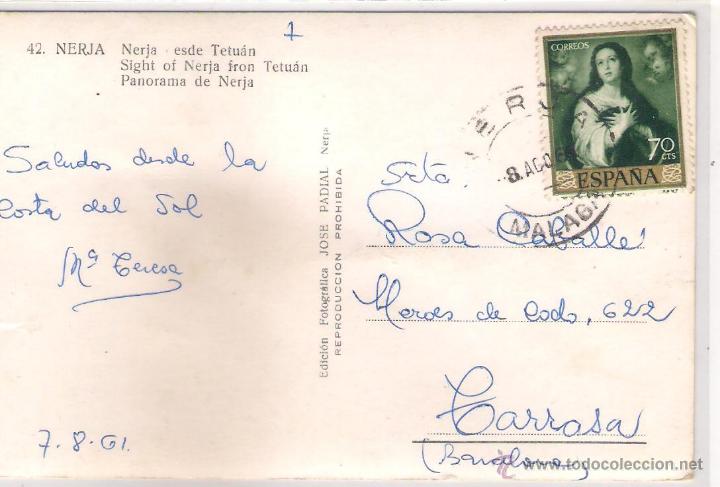 1
42. NERJA Nerja esde Tetuán
Sight of Nerja fron Tetuán
Panorama de Nerja
Saludos desde la
Costa del Sol
Mª Teresa
7-8-61.
Edición Fotográfica JOSE PADIAL Nerja
REPRODUCCION PROHIBIDA
CORREOS
70
CTS
ESPAÑA
NERJA
8 AGO 61
MALAGA
Srta.
Rosa Caballé
de 622
Tarrasa
(Barcelona)
www.todocoleccion.net